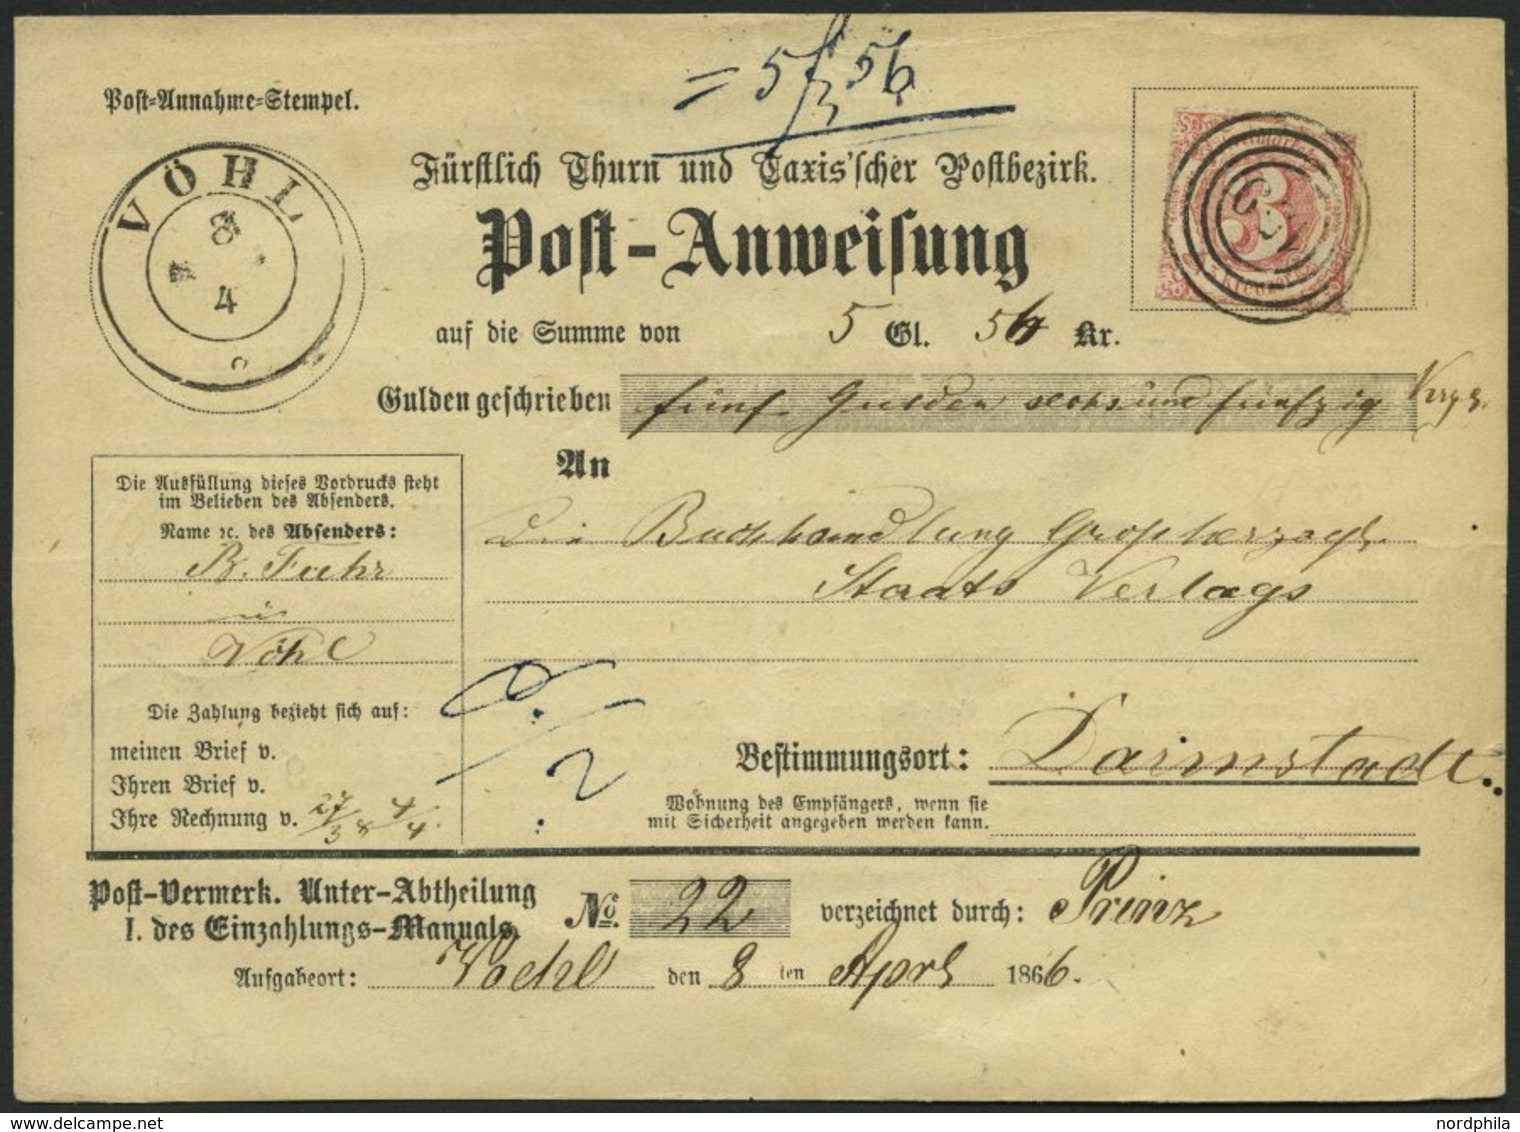 = 5 f 56
Post-Annahme-Stempel.
VÖHL
8
4
Fürstlich Thurn und Taxis'scher Postbezirk.
Post-Anweisung
3
auf die Summe von 5 Gl. 56 Kr.
Gulden geschrieben fünf Gulden sechs und fünfzig
An
Die Buchhandlung Großherzogl.
Staats Verlags
Die Ausfüllung dieses Vordrucks steht
im Belieben des Absenders.
Name ꝛc. des Absenders:
B. Fuhr
in
Vöhl
Die Zahlung bezieht sich auf:
meinen Brief v.
Ihren Brief v.
Ihre Rechnung v. 27/3 & 4/4.
Bestimmungsort: Darmstadt.
Wohnung des Empfängers, wenn sie
mit Sicherheit angegeben werden kann.
Post-Vermerk. Unter-Abtheilung
I. des Einzahlungs-Manuals.
No. 22 verzeichnet durch: Prinz
Aufgabeort: Voehl den 8 ten April 1866.
nordphila